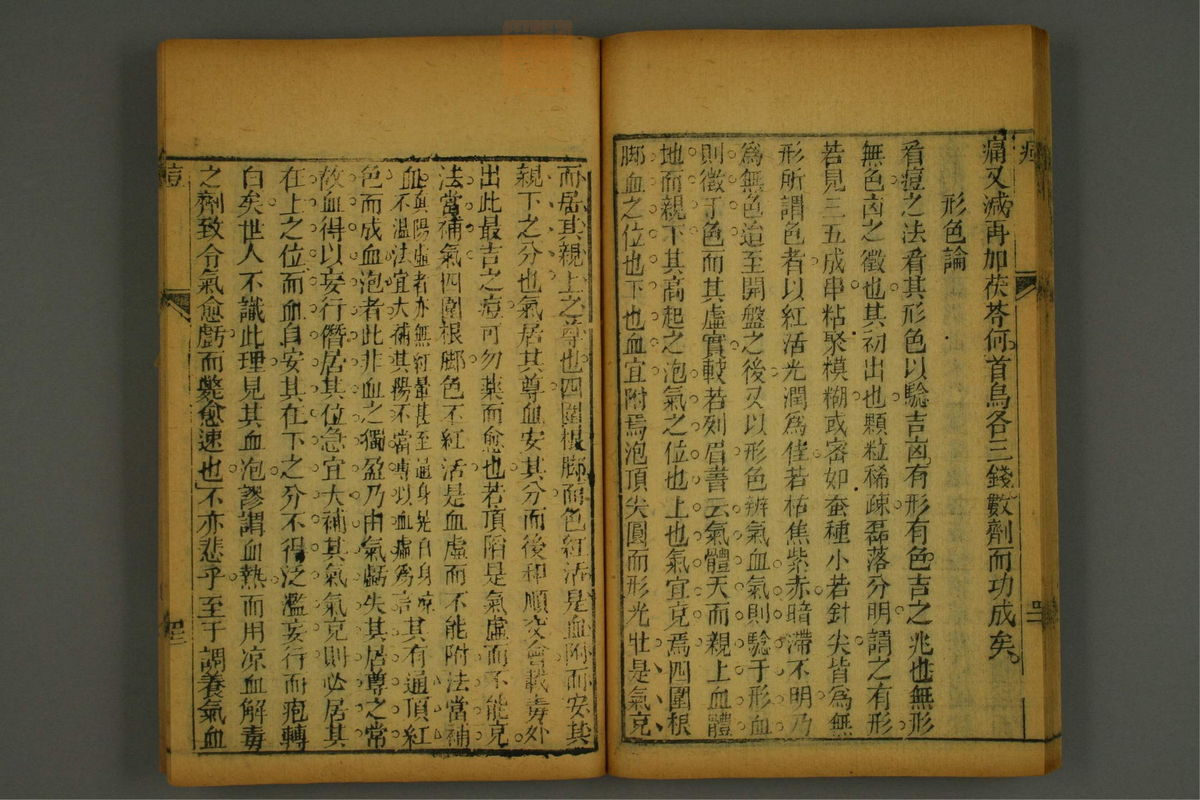 痛又減再加茯苓何首烏各三錢數劑而功成矣
形色論
看痘之法看其形色以驗吉凶有形有色吉之兆也無形
無色凶之徵也其初出也顆粒稀疎磊落分明謂之有形
若見三五成串粘聚模糊或密如蚕種小若針尖皆為無
形所謂色者以紅活光潤為佳若枯焦紫赤暗滯不明乃
為無色迨至開盤之後又以形色辨氣血氣則驗于形血
則徵于色而其虛實較若列眉書云氣體天而親上血體
地而親下其高起之泡氣之位也上也氣宜充焉四圍根
脚血之位也下也血宜附焉泡頂尖圓而形光壯是氣充
而居其親上之尊也四圍根脚而色紅活是血附而安其
親下之分也氣居其尊血安其分而後和順交會載毒外
出此最吉之痘可勿藥而愈也若頂陷是氣虛而不能充
法當補氣四圍根脚色不紅活是血虛而不能附法當補
血與陽虛者亦無紅暈甚至通身晃白身凉
血不溫法宜大補其陽不當專以血虛為言其有通頂紅
色而成血泡者此非血之獨盈乃由氣虧失其居尊之常
故血得以妄行僭居其位急宜大補其氣氣充則必居其
在上之位而血自安其在下之分不得泛濫妄行而疱轉
白矣世人不識此理見其血泡謬謂血熱而用凉血解毒
之劑致令氣愈虧而斃愈速也不亦悲乎至于調養氣血